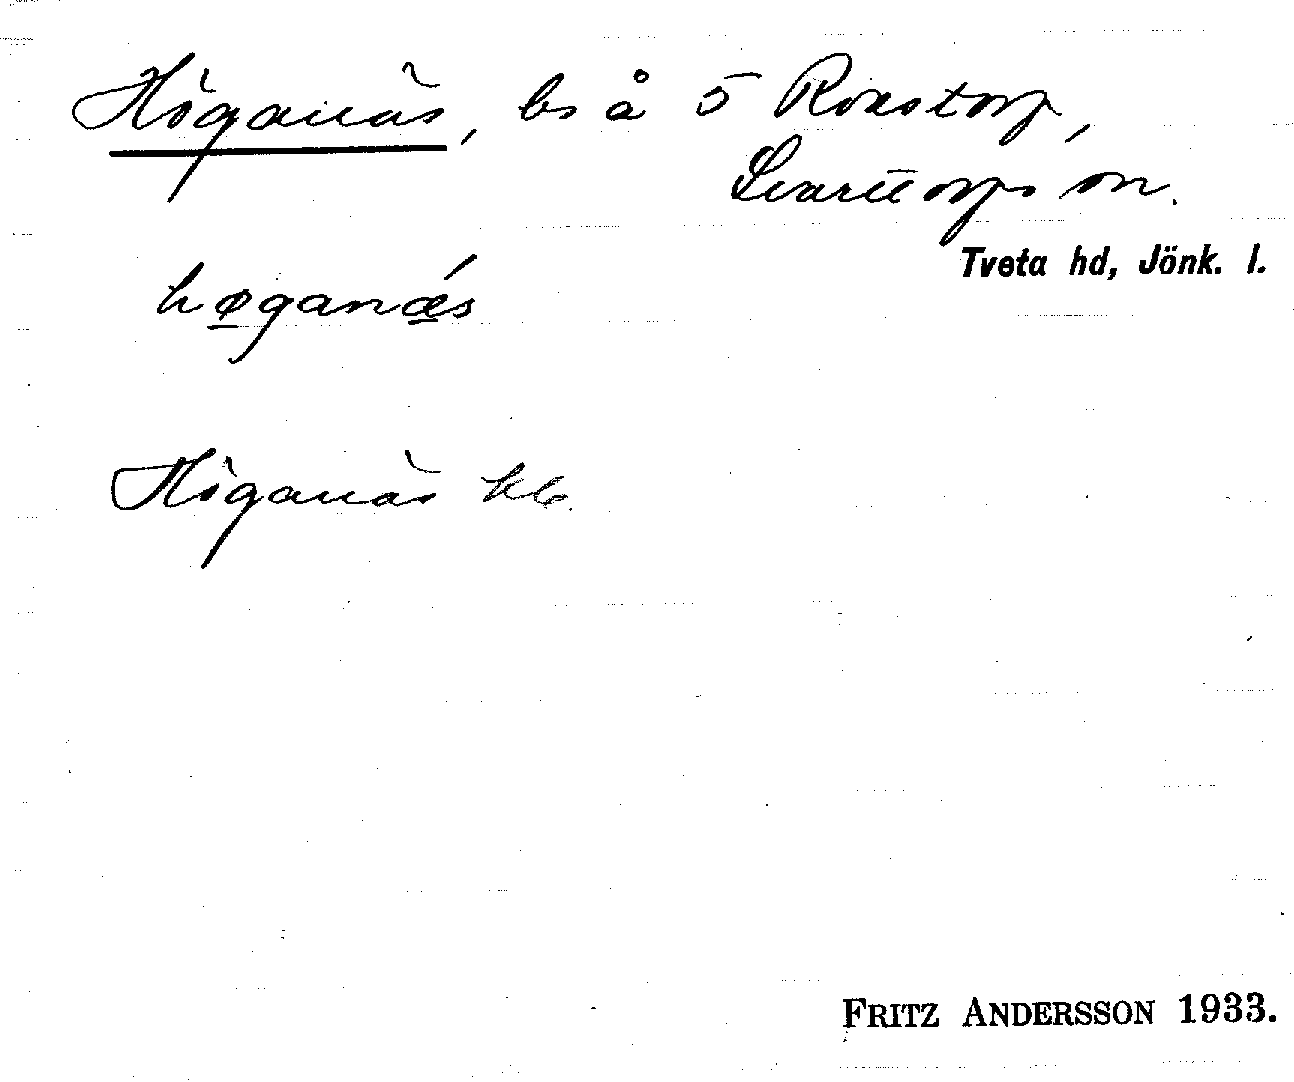 Höganäs, bs å 5 Rokstorp,
Svarttorps sn.
Tveta hd, Jönk. l.
høganǽs
Höganäs kb.
FRITZ ANDERSSON 1933.